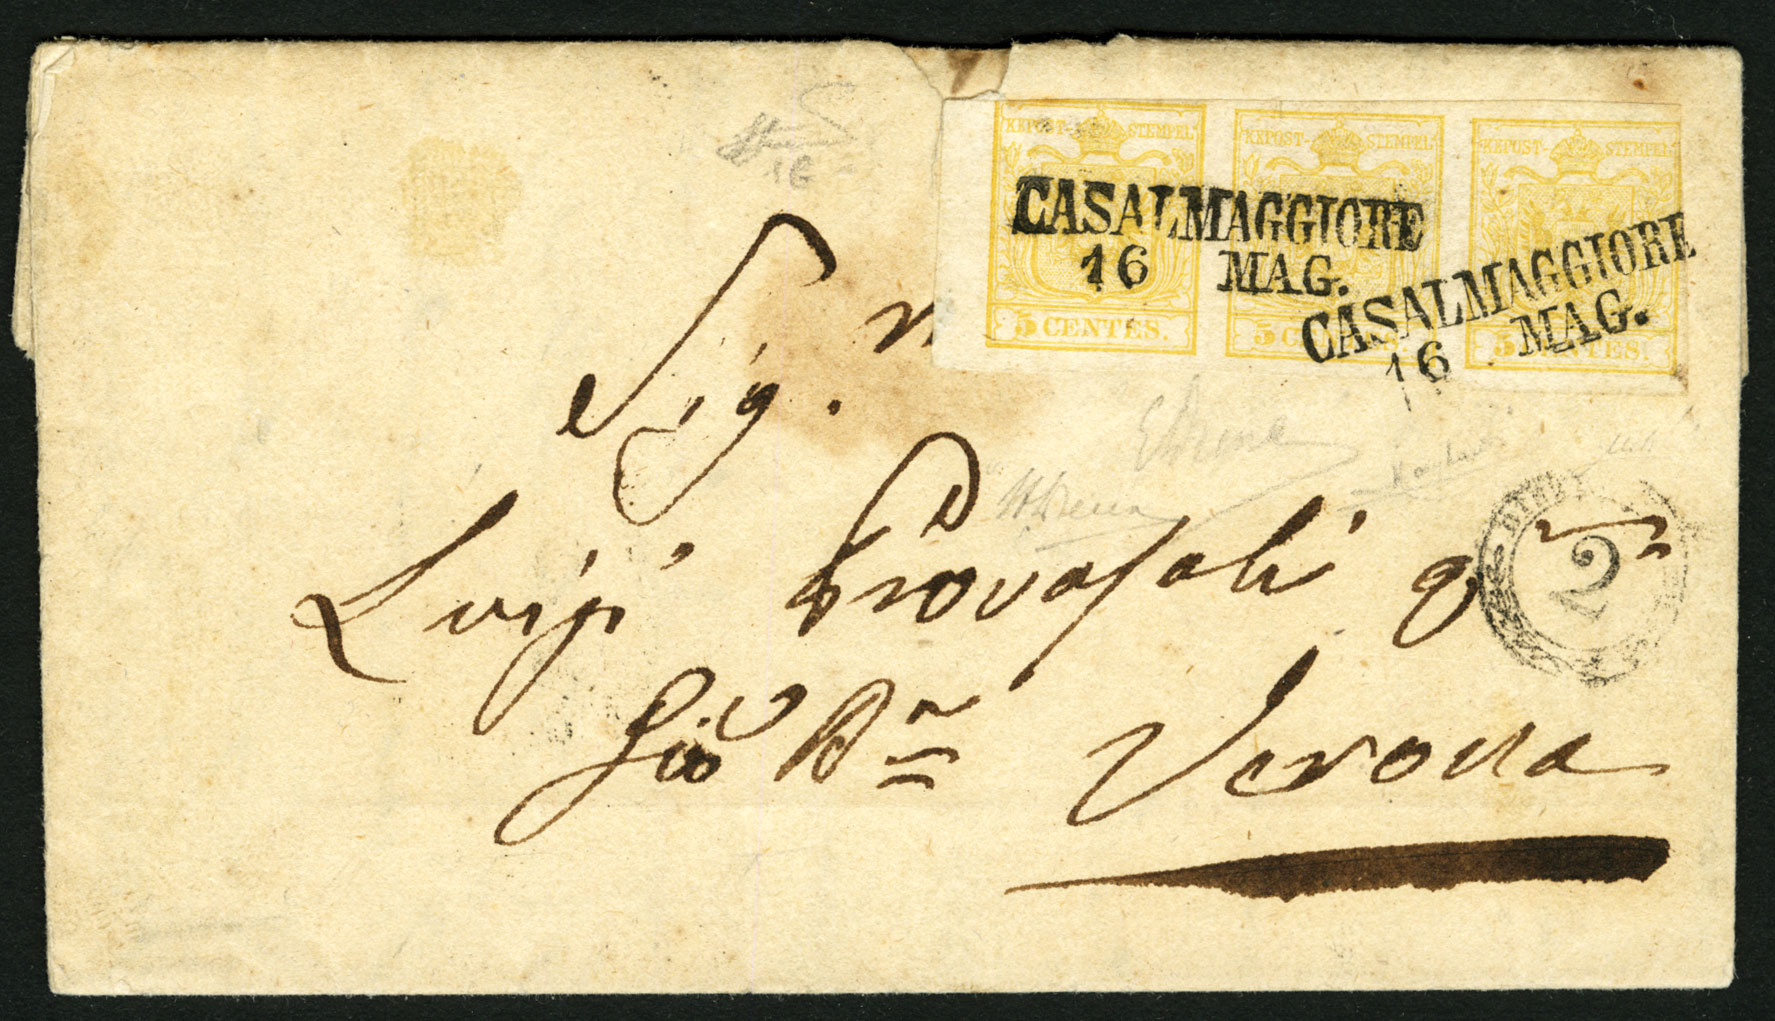 KEPOST-STEMPEL KEPOST-STEMPEL KEPOST-STEMPEL
CASALMAGGIORE
16 MAG.
CASALMAGGIORE
16 MAG.
5 CENTES. 5 CENTES. 5 CENTES.
16
Sig. r
Luigi Provasoli qm
2
Gio Bn Verona